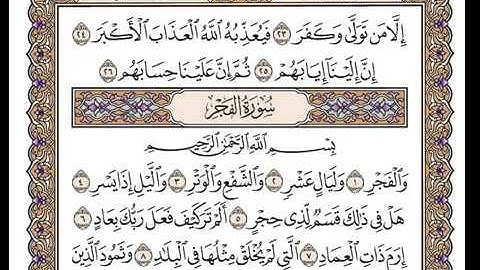 إِلَّا مَن تَوَلَّىٰ وَكَفَرَ ٢٣ فَيُعَذِّبُهُ اللَّهُ الْعَذَابَ الْأَكْبَرَ ٢٤
إِنَّ إِلَيْنَا إِيَابَهُمْ ٢٥ ثُمَّ إِنَّ عَلَيْنَا حِسَابَهُم ٢٦
سُورَةُ الفَجْرِ
بِسْمِ اللَّهِ الرَّحْمَٰنِ الرَّحِيمِ
وَالْفَجْرِ ١ وَلَيَالٍ عَشْرٍ ٢ وَالشَّفْعِ وَالْوَتْرِ ٣ وَاللَّيْلِ إِذَا يَسْرِ ٤
هَلْ فِي ذَٰلِكَ قَسَمٌ لِّذِي حِجْرٍ ٥ أَلَمْ تَرَ كَيْفَ فَعَلَ رَبُّكَ بِعَادٍ ٦
إِرَمَ ذَاتِ الْعِمَادِ ٧ الَّتِي لَمْ يُخْلَقْ مِثْلُهَا فِي الْبِلَادِ ٨ وَثَمُودَ الَّذِينَ